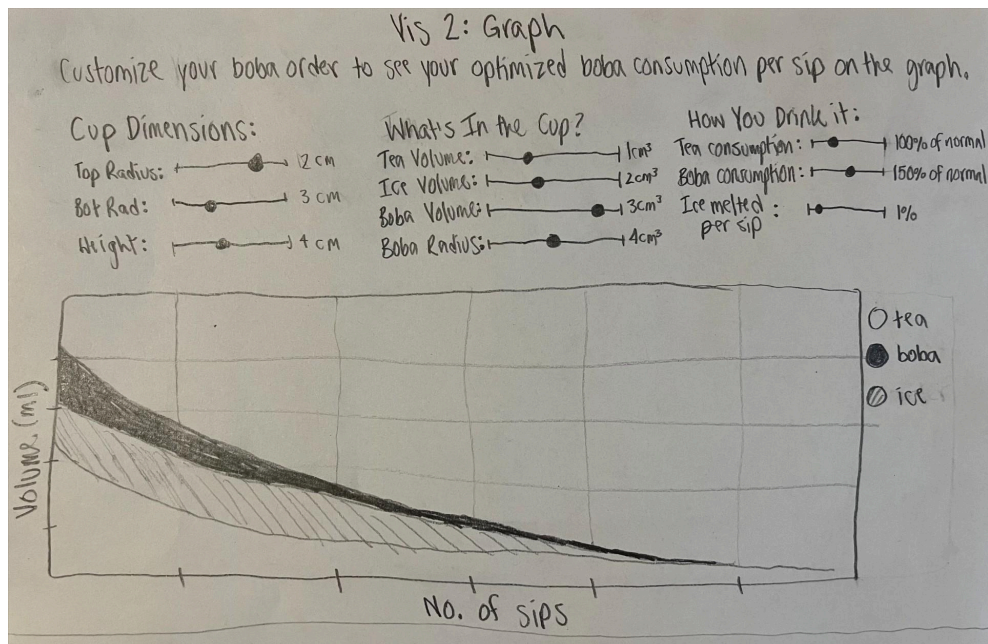 Vis 2: Graph
Customize your boba order to see your optimized boba consumption per sip on the graph.
Cup Dimensions:
Top Radius: 2 cm
Bot Rad: 3 cm
Height: 4 cm
What's In the Cup?
Tea Volume: 1cm³
Ice Volume: 2cm³
Boba Volume: 3cm³
Boba Radius: 4cm³
How You Drink it:
Tea consumption: 100% of normal
Boba consumption: 150% of normal
Ice melted per sip : 1%
tea
boba
ice
Volume (ml)
No. of sips